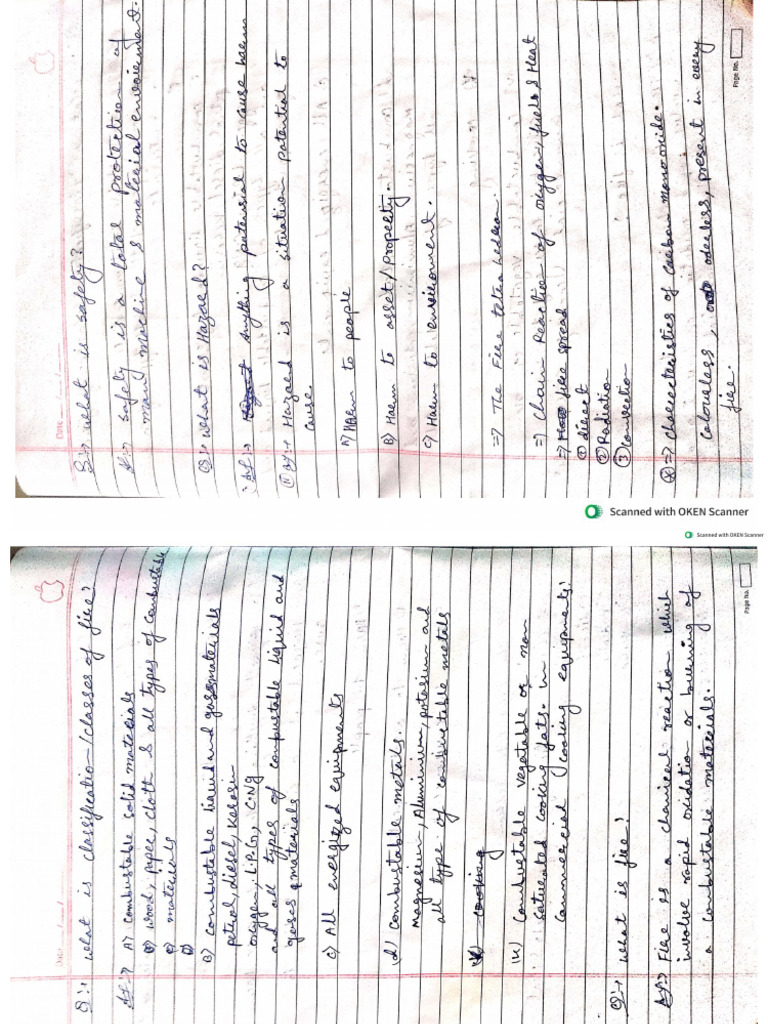 Date __/__/__
Q:→ what is safety?
Af:→ safety is a total protection of
man, machine & material enveiorment.
Q:→ what is Hazard?
Af:→ Anything potensial to cause haem
(II) Hazard is a situation potential to
cause.
A) Haem to people
B) Haem to asset/Property.
C) Haem to environment.
⇒ The Fire tetra hedron.
⇒ Chain Reaction of oxygen, fuel & Heat
⇒ fire spread
① direct
② Radiation
③ Convection
⇒ characteristics of carbon monoxide.
colourless, oderless, present in every
fire.
Page No.
Scanned with OKEN Scanner
Scanned with OKEN Scanner
Date __/__/__
Q:→ what is classification/classes of fire?
Af:→ A) combustable solid materials
wood, paper, cloth & all types of combustable
materials
B) combustable liquid and gases materials
petrol, diesel, kerosin
oxygen, L.P.G, CNG
and all types of combustable liquid and
gases materials
C) All energized equipments
d) combustable metals.
magnesium, Aluminium, potasium and
all type of combustable metals
cooking
(K) Combustable vegetable or non
saturated cooking fats. in
commercial cooking equipments.
Q:→ what is fire?
Af:→ Fire is a chamical reaction which
involve rapid oxidation or burning of
a combustable materials.
Page No.